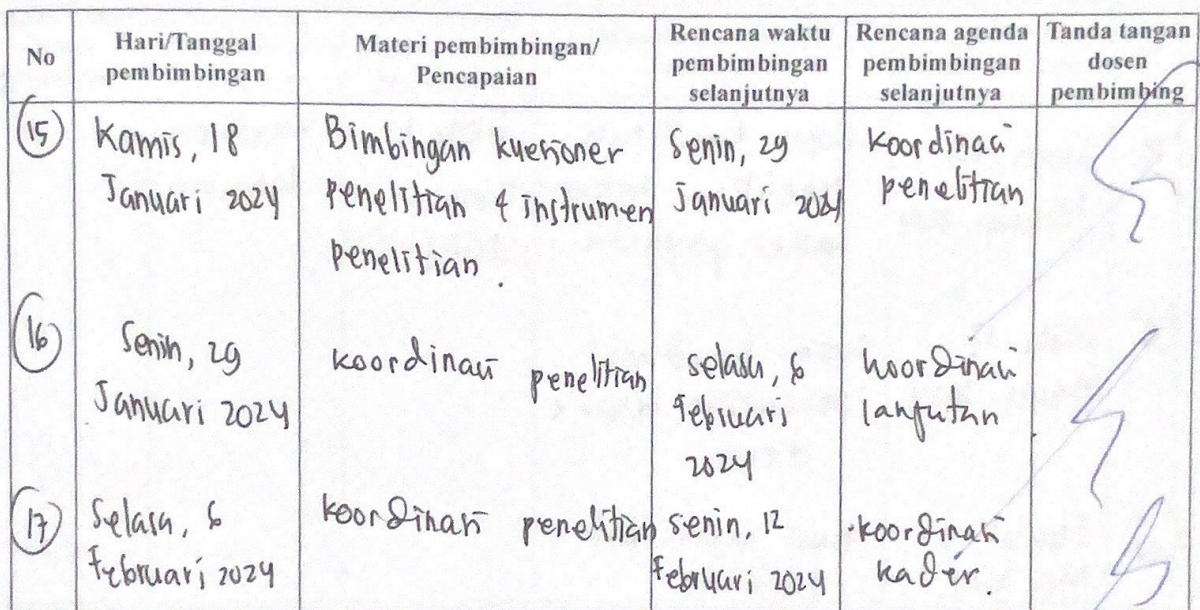 No
Hari/Tanggal
pembimbingan
Materi pembimbingan/
Pencapaian
Rencana waktu
pembimbingan
selanjutnya
Rencana agenda
pembimbingan
selanjutnya
Tanda tangan
dosen
pembimbing
15
Kamis, 18
Januari 2024
Bimbingan kuesioner
penelitian & instrumen
penelitian.
Senin, 29
Januari 2024
Koordinasi
penelitian
16
Senin, 29
Januari 2024
koordinasi penelitian
selasa, 6
februari
2024
koordinasi
lanjutan
17
Selasa, 6
februari 2024
koordinasi penelitian
senin, 12
februari 2024
koordinasi
kader.